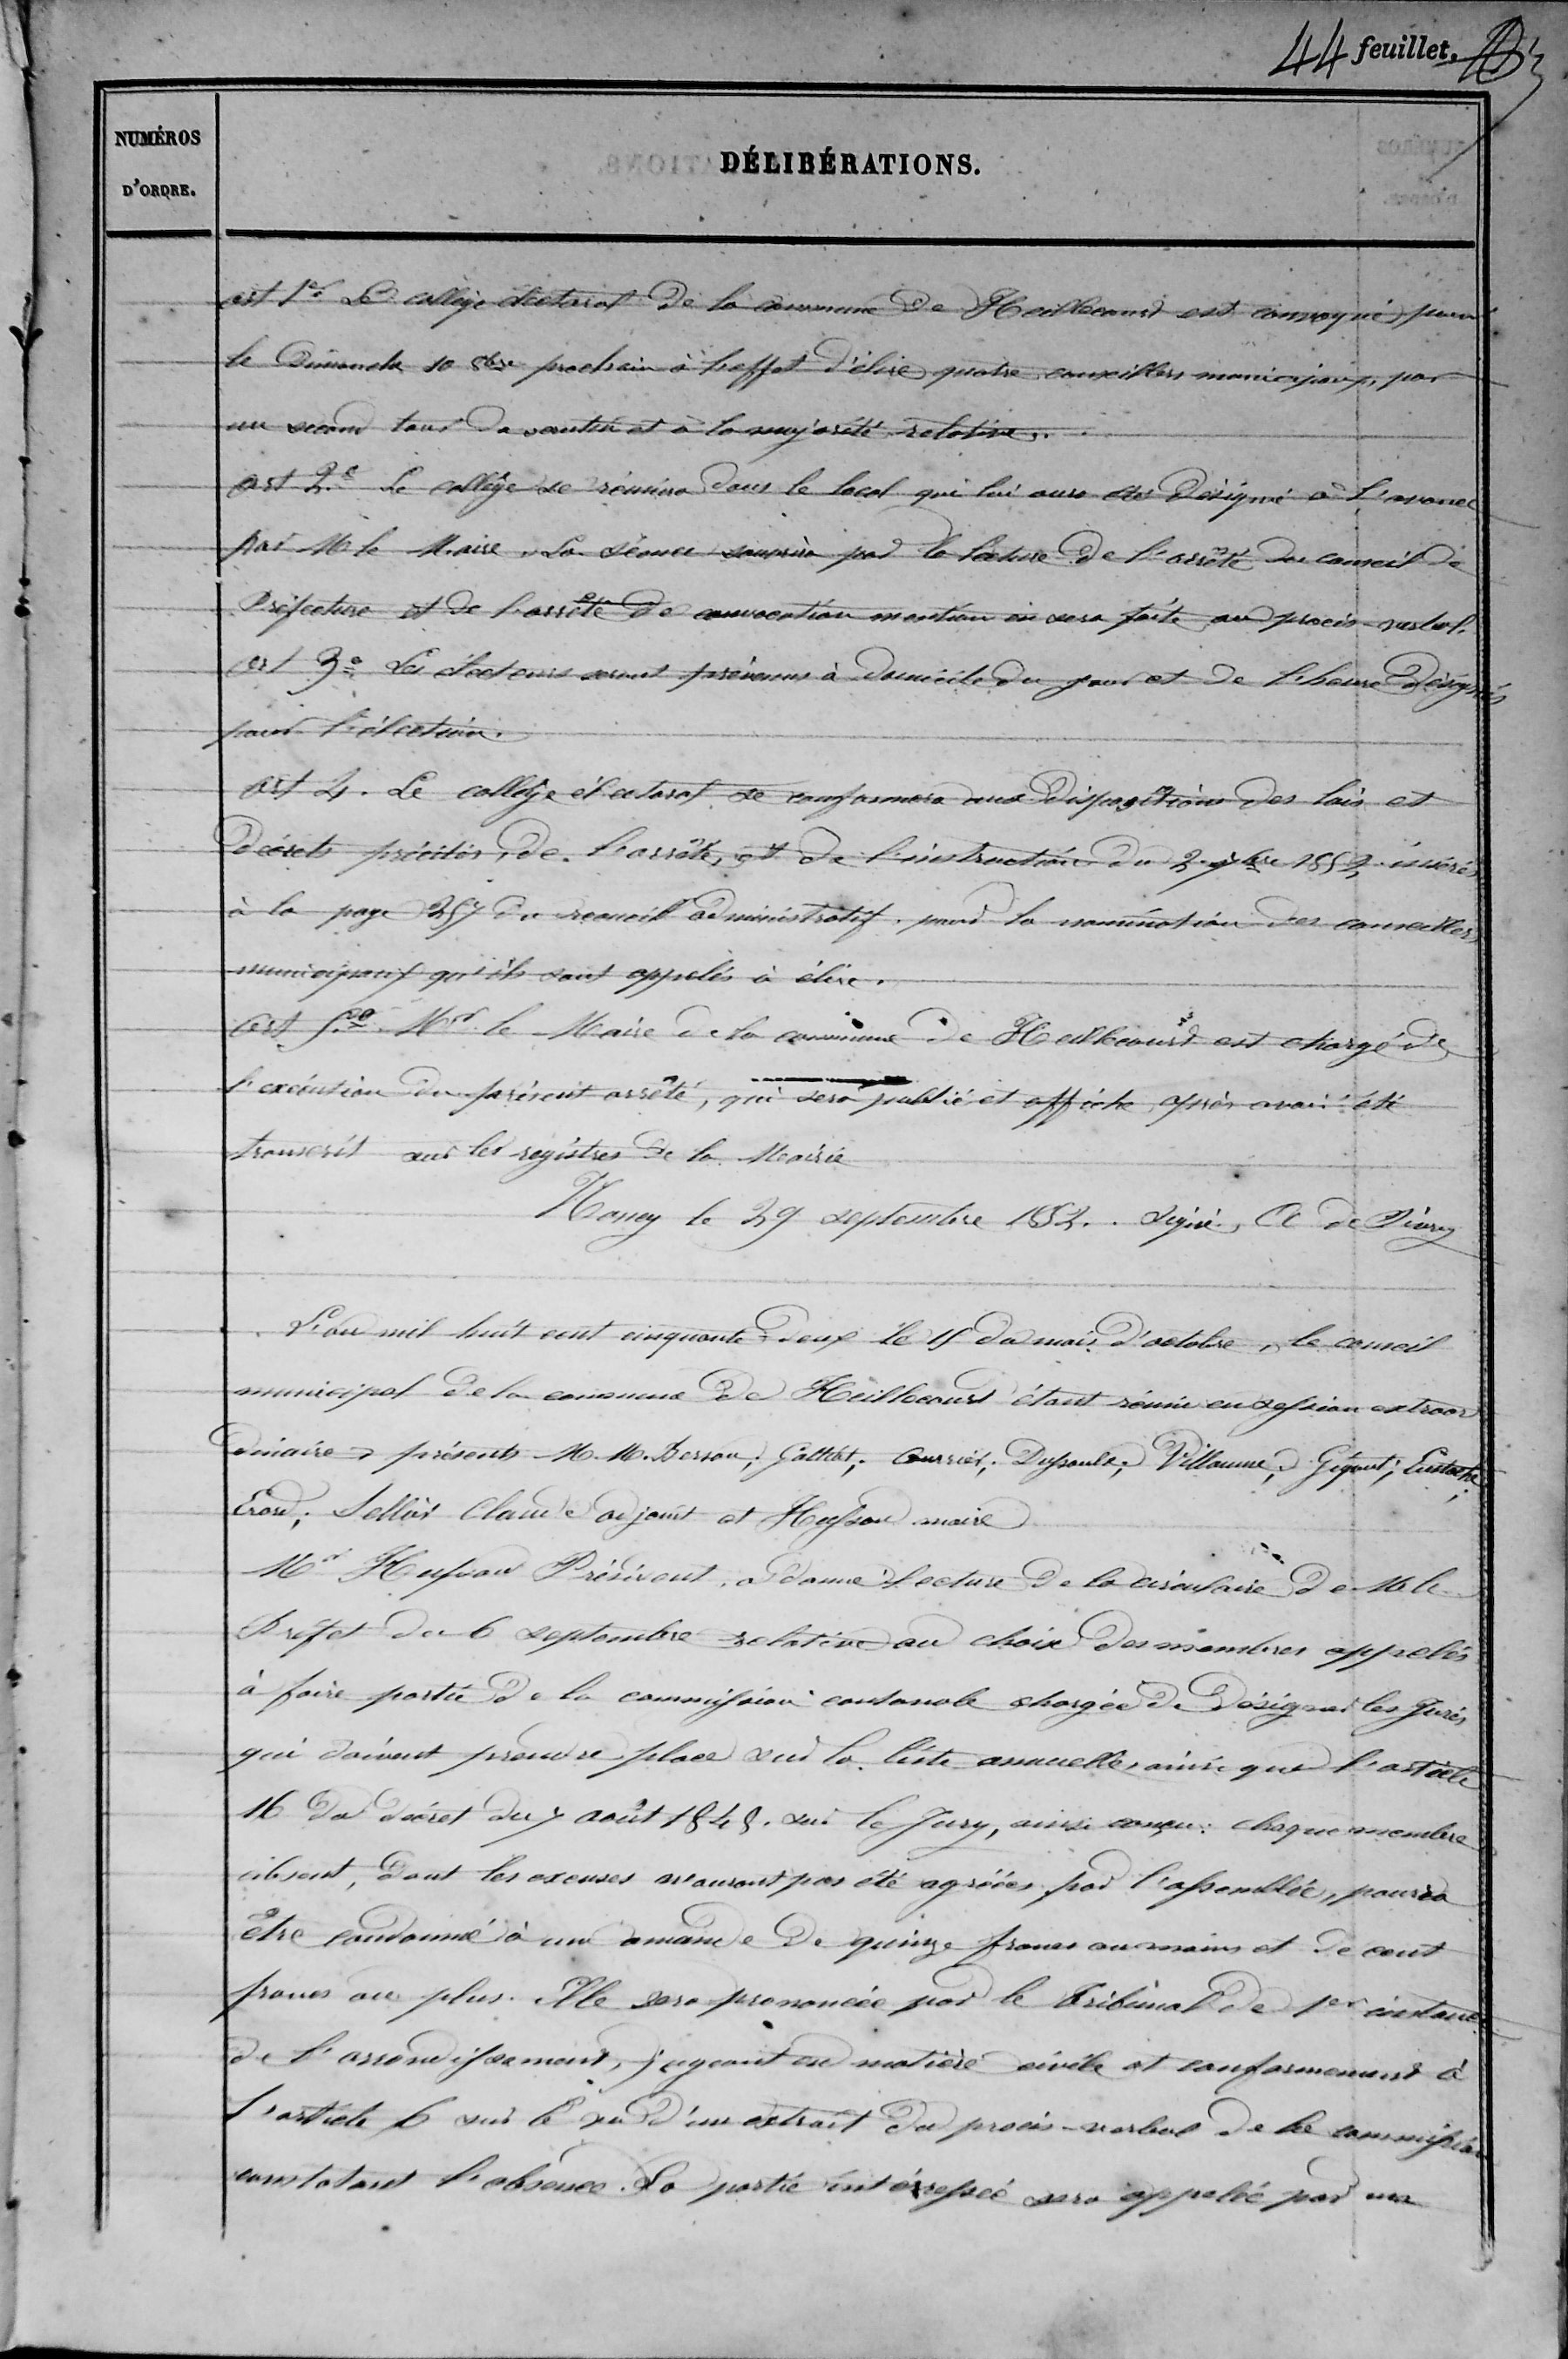 44 feuillet.
NUMÉROS
D'ORDRE.
DÉLIBÉRATIONS.
art 1er Le collège électoral de la commune de Heillecourt est convoqué pour
le Dimanche 10 8bre prochain à l'effet d'élire quatre conseillers municipaux, par
un second tour de scrutin et à la majorité relative.
art 2e Le collège se réunira dans le local qui lui aura été désigné à l'avance
par M le Maire. La séance s'ouvrira par la lecture de l'arrêté du conseil de
Préfecture et de l'arrêté de convocation mention en sera faite au procès-verbal.
art 3e Les électeurs seront prévenus à domicile du jour et de l'heure désignés
pour l'élection.
art 4. Le collège électoral se conformera aux dispositions des lois et
décrets précités, de l'arrêté, et de l'instruction du 2 7bre 1852 insérés
à la page 257 du recueil administratif. pour la nomination des conseillers
municipaux qu'ils sont appelés à élire.
art 5e Mr le Maire de la commune de Heillecourt est chargé de
l'exécution du présent arrêté, qui sera publié et affiché après avoir été
transcrit sur les registres de la Mairie
Nancy le 29 septembre 1852. signé, A de
L'an mil huit cent cinquante-deux le 15 du mois d'octobre, le conseil
municipal de la commune de Heillecourt étant réuni en session extraor
dinaire, présents M.M. Berson; Galliot; Courrier; Dussaulx; Villaume; Gégout; Eustache;
Erard; Sellier Claude adjoint et Husson maire
Mr Husson Président, a donné lecture de la circulaire de M le
Préfet du 6 septembre relative au choix des membres appelés
à faire partie de la commission cantonale chargée de désigner les Jurés
qui doivent prendre place sur la liste annuelle, ainsi que l'article
16 du décret du 7 août 1848. sur le Jury, ainsi conçu: chaque membre
absent, dont les excuses n'auront pas été agréées par l'assemblée, pourra
être condamné à une amande de quinze francs au moins et de cent
francs au plus. Elle sera prononcée par le Tribunal de 1er instance
de l'arrondissement, jugeant en matière civile et conformement à
l'article 6 sur le vu d'un extrait du procès-verbal de la commission
constatant l'absence. La partie intérressée sera appelée par un